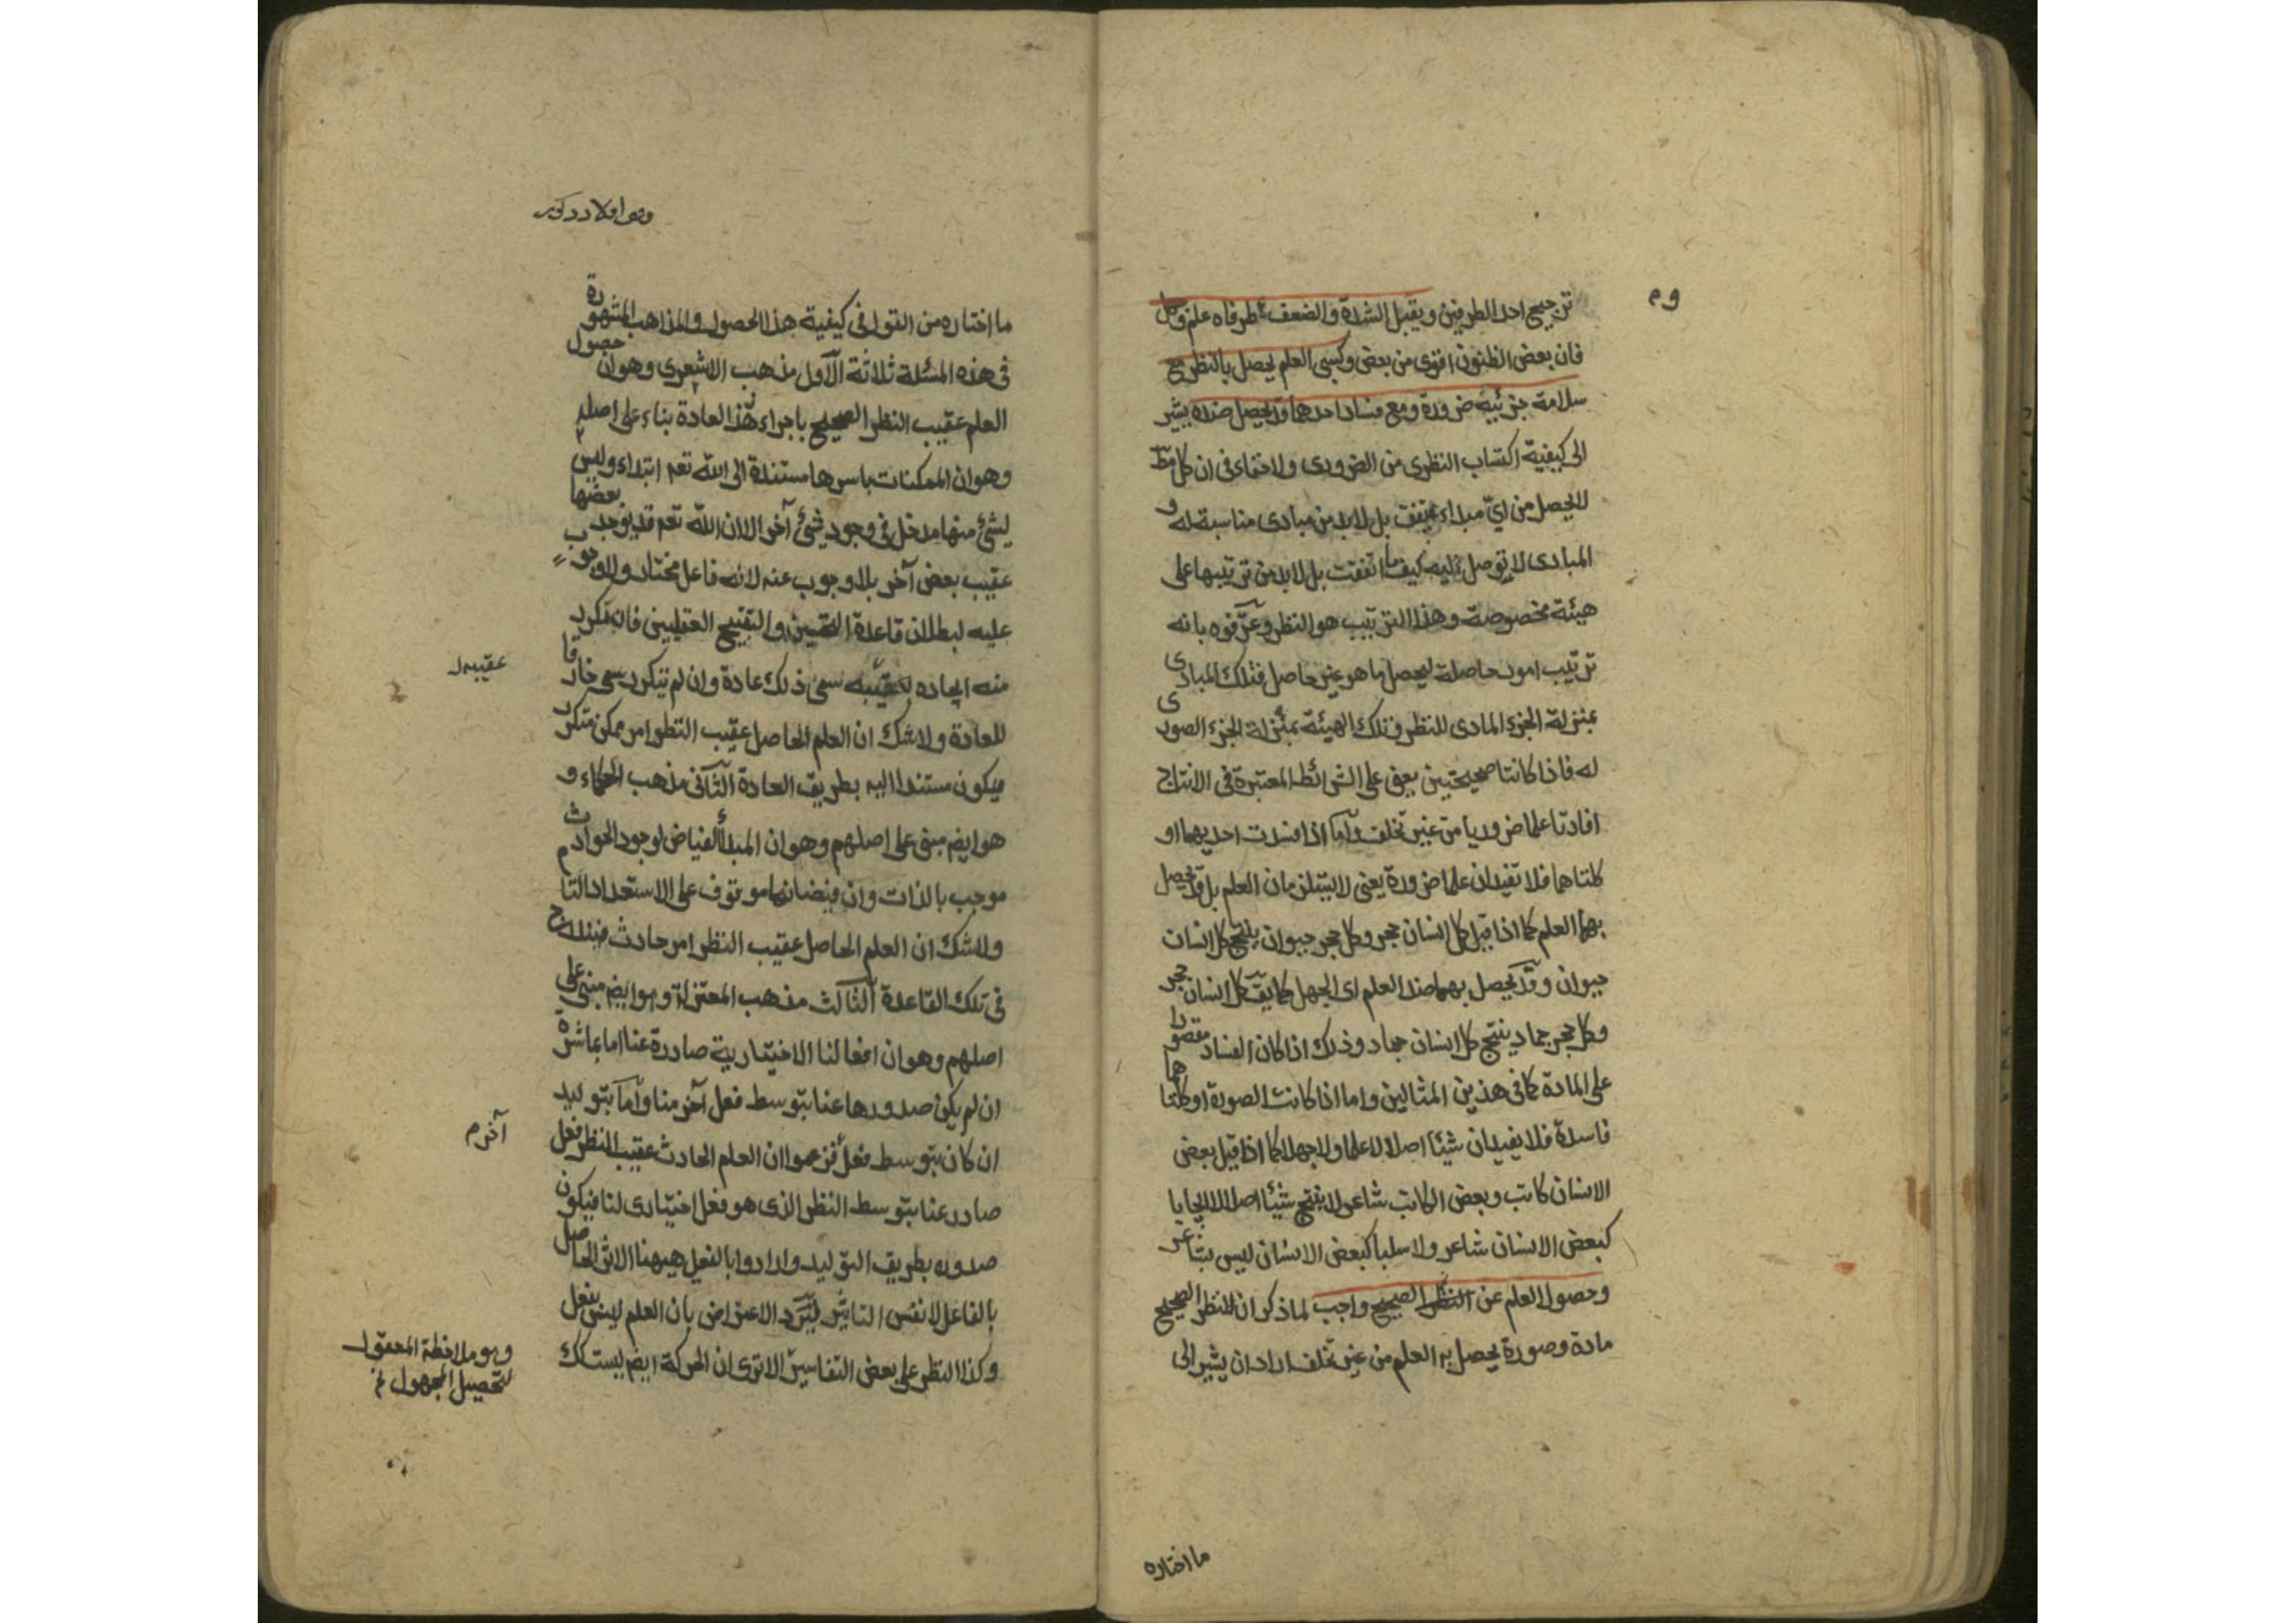 وم
ترجيح احد الطرفين ويقبل الشدة والضعف طرفاه علم وكل
فان بعض الظنون اقوى من بعض وكسبى العلم يحصل بالنظر مع
سلامة جزئيه ضرورة ومع فساد احدهما قد يحصل ضده يشير
الى كيفية اكتساب النظرى من الضرورى ولا خفاء فى ان كل مط
لا يحصل من اىّ مبداء يتفق بل لابد من مبادى مناسبة له و
المبادى لا توصل اليه كيف ما اتفقت بل لابد من ترتيبها على
هيئة مخصوصة وهذا الترتيب هو النظر وعرّفوه بانه
ترتيب امور حاصلة ليحصل ما هو غير حاصل فتلك المبادى
بمنزلة الجزء المادى للنظر وتلك الهيئة بمنزلة الجزء الصورى
له فاذا كانتا صحيحتين يعنى على الشرائط المعتبرة فى الانتاج
افادتا علما ضروريا من غير تخلف وآما اذا فسدت احديهما او
كلتاهما فلا تفيدان علما ضرورة يعنى لا يستلزمان العلم بل قد يحصل
بهما العلم كما اذا قيل كل انسان حجر وكل حجر حيوان ينتج كل انسان
حيوان وقد يحصل بهما ضد العلم اى الجهل كما يق كل انسان حجر
وكل حجر جماد ينتج كل انسان جماد وذلك اذا كان الفساد مقصورا
على المادة كما فى هذين المثالين واما اذا كانت الصورة او كلتاهما
فاسدة فلا يفيدان شيئا اصلا لا علما ولا جهلا كما اذا قيل بعض
الانسان كاتب وبعض الكاتب شاعر لا ينتج شيئا اصلا لا ايجابا
كبعض الانسان شاعر ولا سلبا كبعض الانسان ليس بشاعر
وحصول العلم عن النظر الصحيح واجب لما ذكر ان للنظر الصحيح
مادة وصورة يحصل به العلم من غير تخلف اراد ان يشير الى
ما اختاره
ما اختاره من القول فى كيفية هذا الحصول والمذاهب المشهورة
فى هذه المسئلة ثلاثة الآول مذهب الاشعرى وهو ان حصول
العلم عقيب النظر الصحيح باجراء العادة بناء على اصله
وهو ان الممكنات باسرها مستندة الى الله تعم ابتداء وليس
لشئ منها مدخل فى وجود شئ آخر الا ان الله تعم قد يوجد بعضها
عقيب بعض آخر بلا وجوب عنه لانه فاعل مختار ولا وجوب
عليه لبطلان قاعدة التحسين والتقبيح العقليين فان تكرر
منه ايجاده بعقيبه سمى ذلك عادة وان لم يتكرر سمى خارقا
عقيبه
للعادة ولا شك ان العلم الحاصل عقيب النظر امر ممكن متكرر
فيكون مستندا اليه بطريق العادة الثآنى مذهب الحكماء و
هو ايضم مبنى على اصلهم وهو ان المبدأ الفياض لوجود الحوادث
موجب بالذات وان فيضانها موقوف على الاستعداد التام
ولا شك ان العلم الحاصل عقيب النظر امر حادث فيندرج
فى تلك القاعدة الثالث مذهب المعتزلة وهو ايضم مبنى على
اصلهم وهو ان افعالنا الاختيارية صادرة عنا اما بمباشرة
ان لم يكن صدورها عنا بتوسط فعل آخر منا وآما بتوليد
ان كان بتوسط فعل فزعموا ان العلم الحادث عقيب النظر فعل
آخر م
صادر عنا بتوسط النظر الذى هو فعل اختيارى لنا فيكون
صدوره بطريق التوليد وارادوا بالفعل هيهنا الاثر الحاصل
بالفاعل لا نفس التاثير ليرد الاعتراض بان العلم ليس بفعل
وكذا النظر على بعض التفاسير الا ترى ان الحركة ايضم ليست كك
وهو ملاحظة المعقول
لتحصيل المجهول